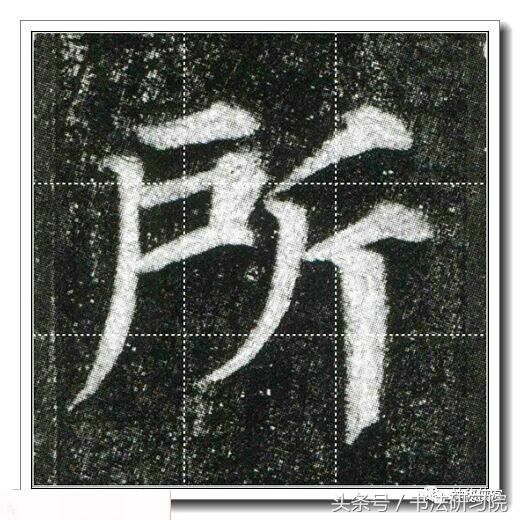 所
头条号/书法研习院